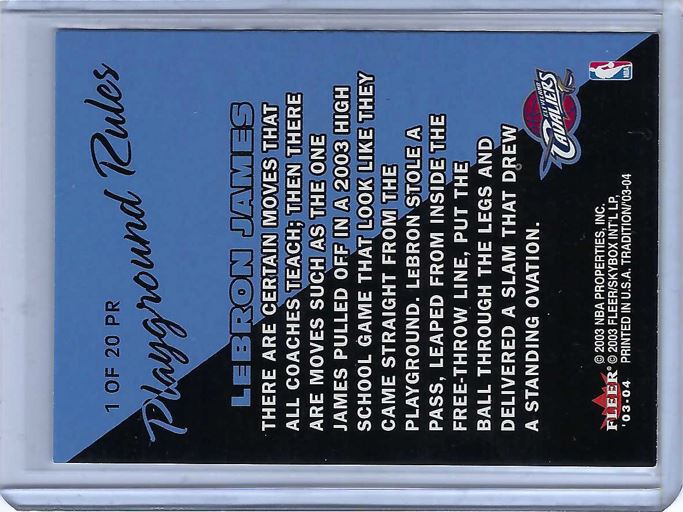 1 OF 20 PR
Playground Rules
LEBRON JAMES
THERE ARE CERTAIN MOVES THAT
ALL COACHES TEACH; THEN THERE
ARE MOVES SUCH AS THE ONE
JAMES PULLED OFF IN A 2003 HIGH
SCHOOL GAME THAT LOOK LIKE THEY
CAME STRAIGHT FROM THE
PLAYGROUND. LEBRON STOLE A
PASS, LEAPED FROM INSIDE THE
FREE-THROW LINE, PUT THE
BALL THROUGH THE LEGS AND
DELIVERED A SLAM THAT DREW
A STANDING OVATION.
CLEVELAND
CAVALIERS
NBA
FLEER®
'03-04
© 2003 NBA PROPERTIES, INC.
© 2003 FLEER/SKYBOX INT'L LP,
PRINTED IN U.S.A. TRADITION/'03-04